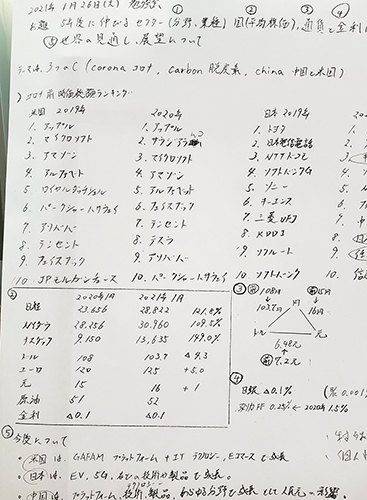 2021年1月26日(火) 勉強会 ① ② ③ ④
お題 5年後に伸びるセクター(分野、業種) 国(平均株価)、通貨と金利
⑤世界の見通し、展望について
テーマは、3つのC (corona コロナ, carbon 脱炭素, china 中国と米国)
コロナ前 時価総額ランキング
米国 2019年 2020年 日本 2019年
1. アップル 1. アップル 1. トヨタ
2. マイクロソフト 2. サウジアラムコ 2. 日本電信電話
3. アマゾン 3. マイクロソフト 3. NTTドコモ
4. アルファベット 4. アマゾン 4. ソフトバンクG
5. ロイヤルダッチシェル 5. アルファベット 5. ソニー
6. バークシャーハサウェイ 6. フェイスブック 6. キーエンス
7. アリババ 7. テンセント 7. 三菱UFJ
8. テンセント 8. テスラ 8. KDDI
9. フェイスブック 9. アリババ 9.
10. JPモルガンチェース 10. バークシャーハサウェイ 10. ソフトバンク
② 2020年1月 2021年1月
日経 23.656 28.822 121.8%
NYダウ 28.256 30.960 109.5%
ナスダック 9.150 13.635 149.0%
ドル 108 103.7 △4.3
ユーロ 120 125 +5.0
元 15 16 +1
原油 51 52
金利 △0.1 △0.1
③ 108円 15円
103.7円 円 16円
ドル 元
6.48元
7.2元
④
日銀 △0.1%
米国FF 0.25% ← 2020年 1.5%
⑤
今後について
・米国は、GAFAM プラットフォーム+IT テクノロジー、Eコマースで成長
・日本は、EV, 5G, などの技術や製品で成長。
・中国は、プラットフォーム、技術、製品、あらゆる分野で成長